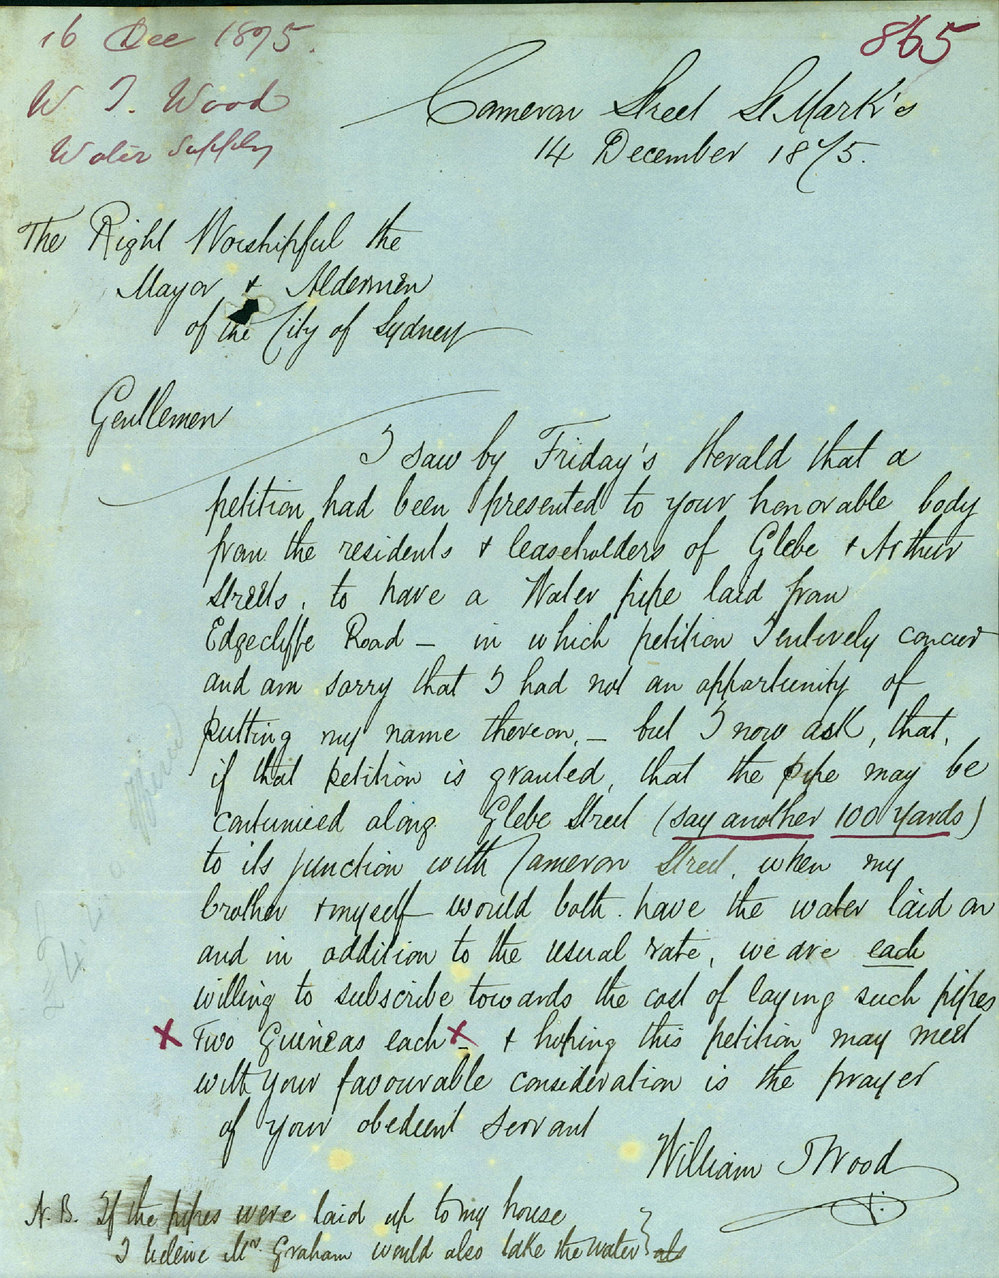 16 Dec 1875.
W T. Wood
Water Supply
865
Cameron Street St Mark's
14 December 1875.
The Right Worshipful the
Mayor & Aldermen
of the City of Sydney
Gentlemen
I saw by Friday's Herald that a
petition had been presented to your honorable body
from the residents & leaseholders of Glebe & Arthur
Streets, to have a Water pipe laid from
Edgecliffe Road – in which petition I entirely concur
and am sorry that I had not an opportunity of
putting my name thereon, – but I now ask, that,
if that petition is granted, that the pipe may be
continued along Glebe Street (say another 100 Yards)
to its junction with Cameron Street, when my
brother & myself would both have the water laid on
and in addition to the usual rate, we are each
willing to subscribe towards the cost of laying such pipes
x Two Guineas each x – & hoping this petition may meet
with your favourable consideration is the prayer
of your obedient servant
William T Wood
N.B. If the pipes were laid up to my house
I beleive Mr. Graham would also take the water